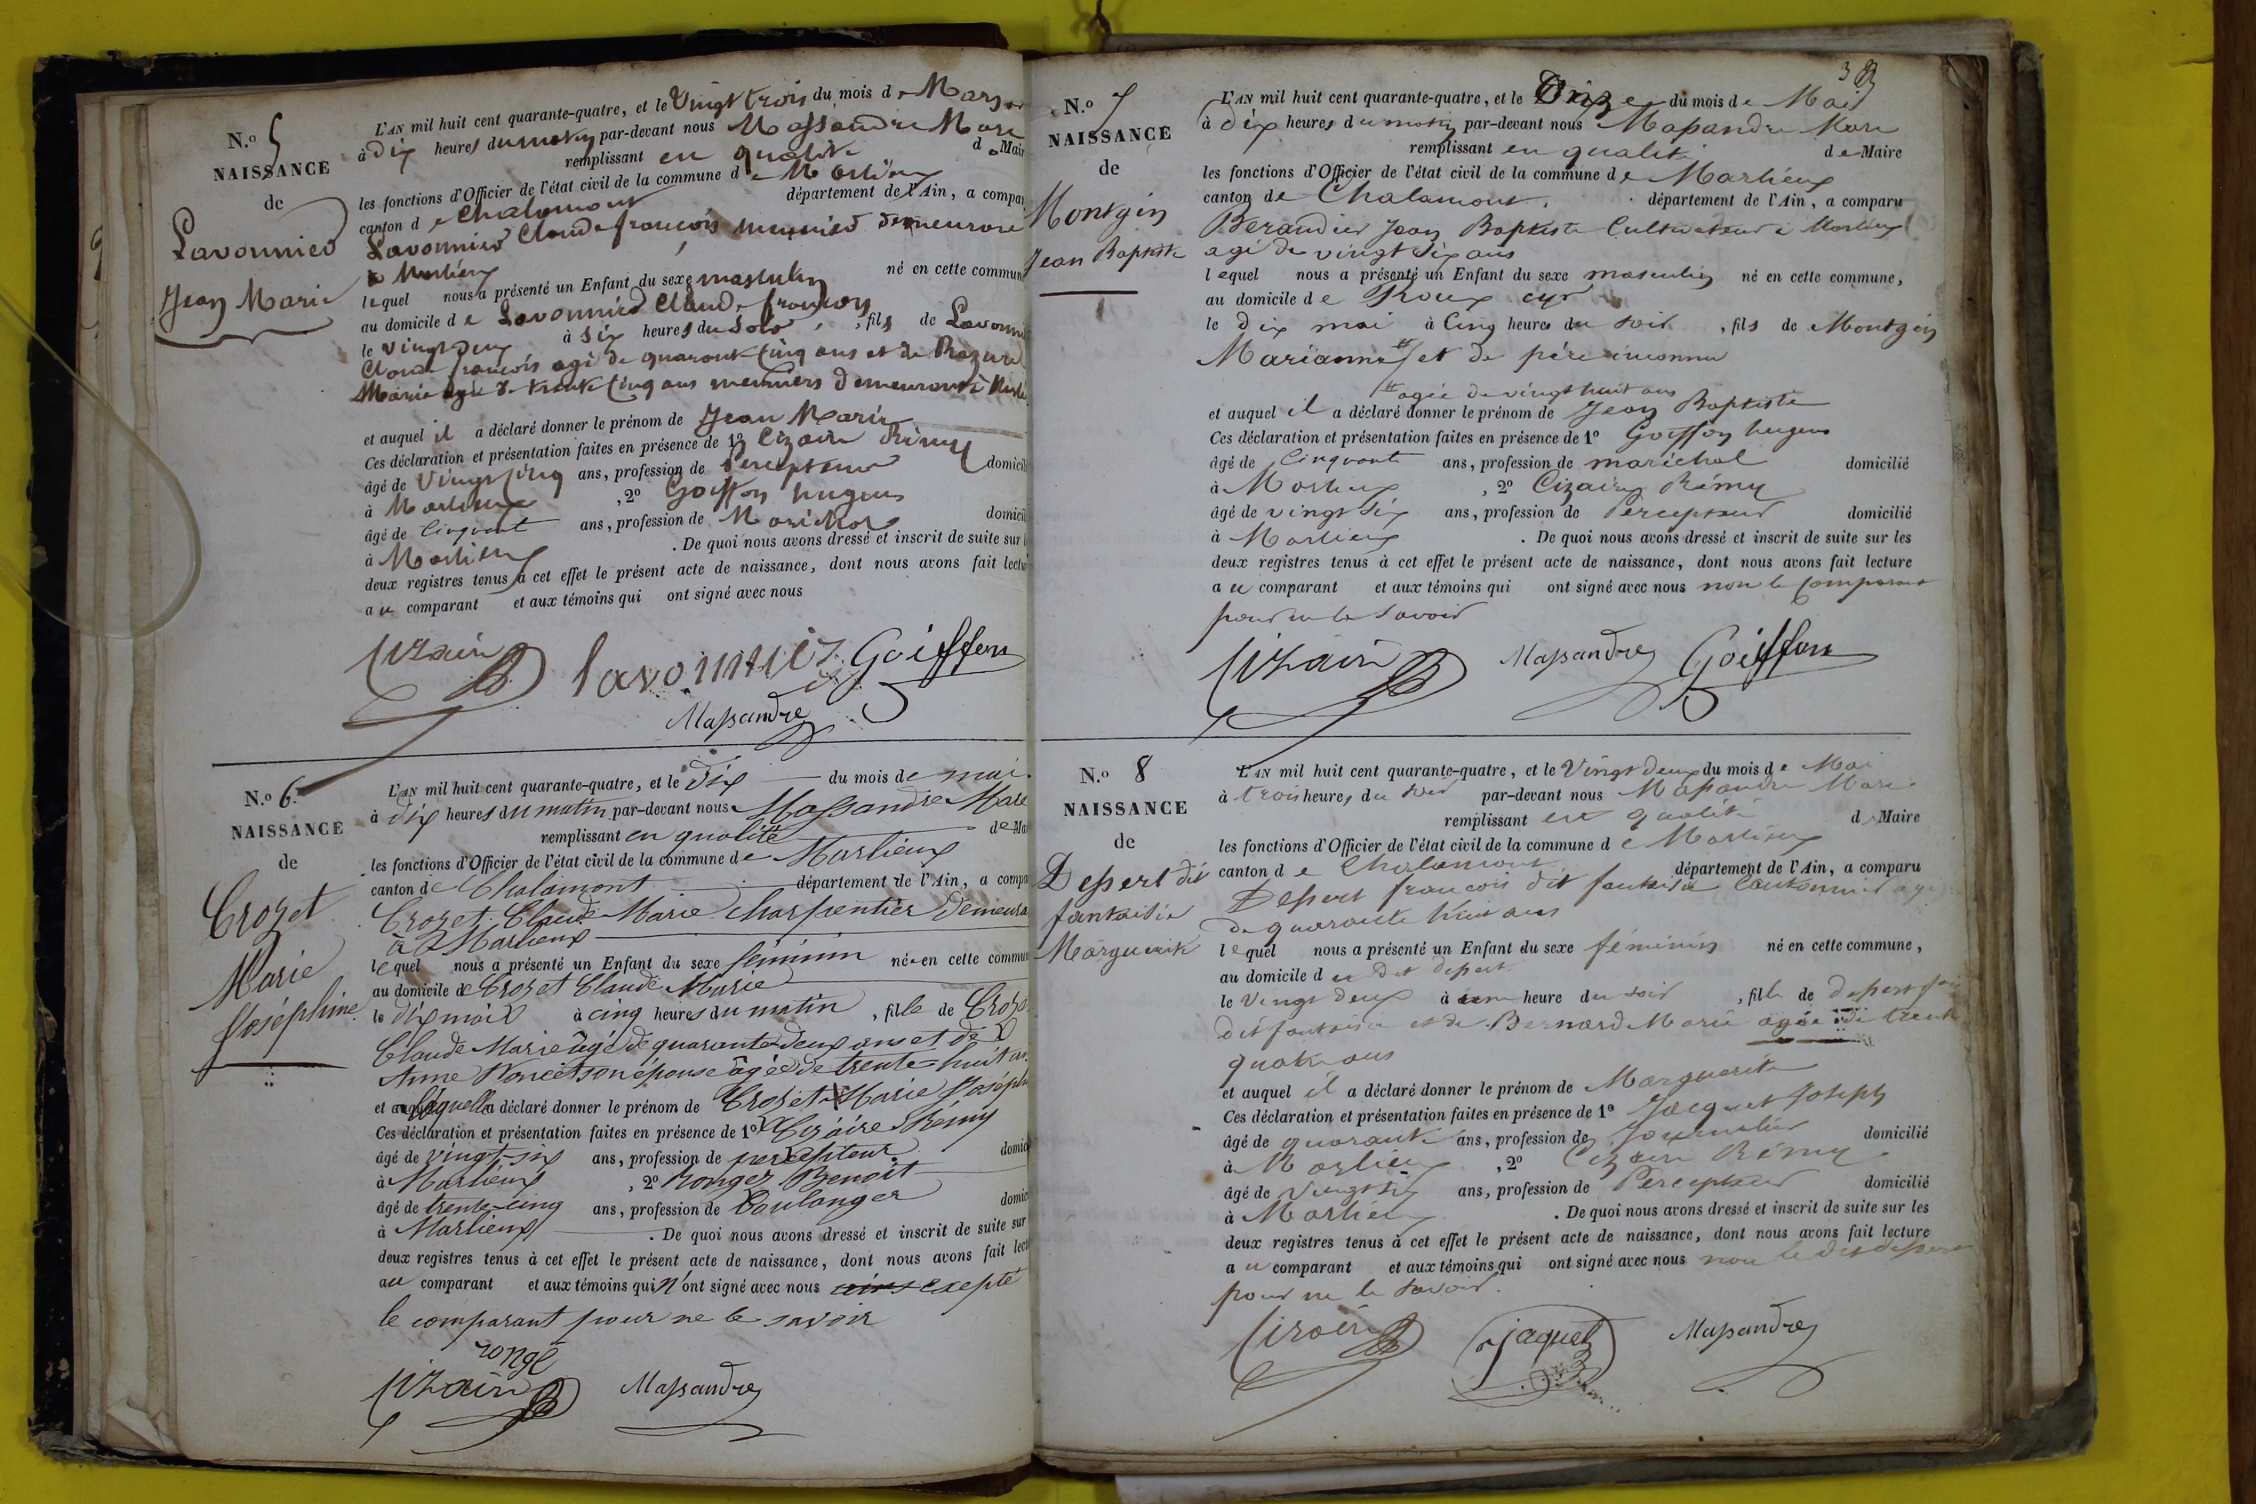 N.o 5
NAISSANCE
de
Lavonnier
Jean Marie
L'AN mil huit cent quarante-quatre, et le Vingt trois du mois de Mars
à dix heures du matin par-devant nous Massandre Marc
remplissant en qualité de Maire
les fonctions d'Officier de l'état civil de la commune de Marlieux
canton de Chalamont département de l'Ain, a compa
Lavonnier Claude françois meunier demeurant
à Marlieux
lequel nous a présenté un Enfant du sexe masculin né en cette commun
au domicile de Lavonnier Claude françois
le vingt deux à six heures du soir, fils de Lavonni
Claude françois agé de quarante cinq ans et de
Marie agée de trente cinq ans meuniers demeurant à
et auquel il a déclaré donner le prénom de Jean Marie
Ces déclaration et présentation faites en présence de 1o Cizaire Rémy
âgé de vingt cinq ans, profession de Percepteur domicili
à Marlieux, 2o Goiffon hugues
âgé de Cinquante ans, profession de Maréchal domicili
à Marlieux. De quoi nous avons dressé et inscrit de suite sur l
deux registres tenus à cet effet le présent acte de naissance, dont nous avons fait lectu
au comparant et aux témoins qui ont signé avec nous
Cizaire lavonnier Goiffon
Massandre
N.o 6.
NAISSANCE
de
Crozet
Marie
Joséphine
L'AN mil huit cent quarante-quatre, et le dix du mois de mai
à dix heures du matin par-devant nous Massandre Marc
remplissant en qualité de Ma
les fonctions d'Officier de l'état civil de la commune de Marlieux
canton de Chalamont département de l'Ain, a compa
Crozet Claude Marie charpentier demeura
à Marlieux
lequel nous a présenté un Enfant du sexe féminin née en cette commun
au domicile de Crozet Claude Marie
le dix mois à cinq heures du matin, fille de Croz
Claude Marie âgé de quarante deux ans et de
Anne Poncet son épouse âgée de trente-huit an
et a laquelle a déclaré donner le prénom de Crozet Marie Joséph
Ces déclaration et présentation faites en présence de 1o Cizaire Rémy
âgé de vingt-six ans, profession de percepteur domic
à Marlieux, 2o Rongez Benoit
âgé de trente-cinq ans, profession de boulanger domic
à Marlieux. De quoi nous avons dressé et inscrit de suite sur
deux registres tenus à cet effet le présent acte de naissance, dont nous avons fait lect
au comparant et aux témoins qui n'ont signé avec nous exepté
le comparant pour ne le savoir
rongé
Cizaire Massandre
38
N.o 7
NAISSANCE
de
Montgin
Jean Baptiste
L'AN mil huit cent quarante-quatre, et le Onze du mois de Mai
à dix heures du matin par-devant nous Massandre Marc
remplissant en qualité de Maire
les fonctions d'Officier de l'état civil de la commune de Marlieux
canton de Chalamont. département de l'Ain, a comparu
Beraudier Jean Baptiste Cultivateur à Marlieux
agé de vingt six ans
lequel nous a présenté un Enfant du sexe masculin né en cette commune,
au domicile de Roux cyr
le dix mai à Cinq heures du soir, fils de Montgin
Marianne # et de père inconnu
# agée de vingt huit ans
et auquel il a déclaré donner le prénom de Jean Baptiste
Ces déclaration et présentation faites en présence de 1o Goiffon hugues
âgé de Cinquante ans, profession de maréchal domicilié
à Marlieux, 2o Cizaire Rémy
âgé de vingt six ans, profession de Percepteur domicilié
à Marlieux. De quoi nous avons dressé et inscrit de suite sur les
deux registres tenus à cet effet le présent acte de naissance, dont nous avons fait lecture
au comparant et aux témoins qui ont signé avec nous non le comparant
pour ne le savoir
Cizaire Massandre Goiffon
N.o 8
NAISSANCE
de
Depert dit
fantaisie
Marguerite
L'AN mil huit cent quarante-quatre, et le Vingt deux du mois de Mai
à trois heures du soir par-devant nous Massandre Marc
remplissant en qualité de Maire
les fonctions d'Officier de l'état civil de la commune de Marlieux
canton de Chalamont département de l'Ain, a comparu
Depert françois dit fantaisie Cantonnier agé
de quarante huit ans
lequel nous a présenté un Enfant du sexe féminin né en cette commune,
au domicile du dit depert
le Vingt deux à une heure du soir, fille de depert
dit fantaisie et de Bernard Marie agée de trente
quatre ans
et auquel il a déclaré donner le prénom de Marguerite
Ces déclaration et présentation faites en présence de 1o Jacquet Joseph
âgé de quarante ans, profession de Journalier domicilié
à Marlieux, 2o Cizaire Rémy
âgé de vingt six ans, profession de Percepteur domicilié
à Marlieux. De quoi nous avons dressé et inscrit de suite sur les
deux registres tenus à cet effet le présent acte de naissance, dont nous avons fait lecture
au comparant et aux témoins qui ont signé avec nous non le dit depert
pour ne le savoir.
Cizaire jaquet Massandre